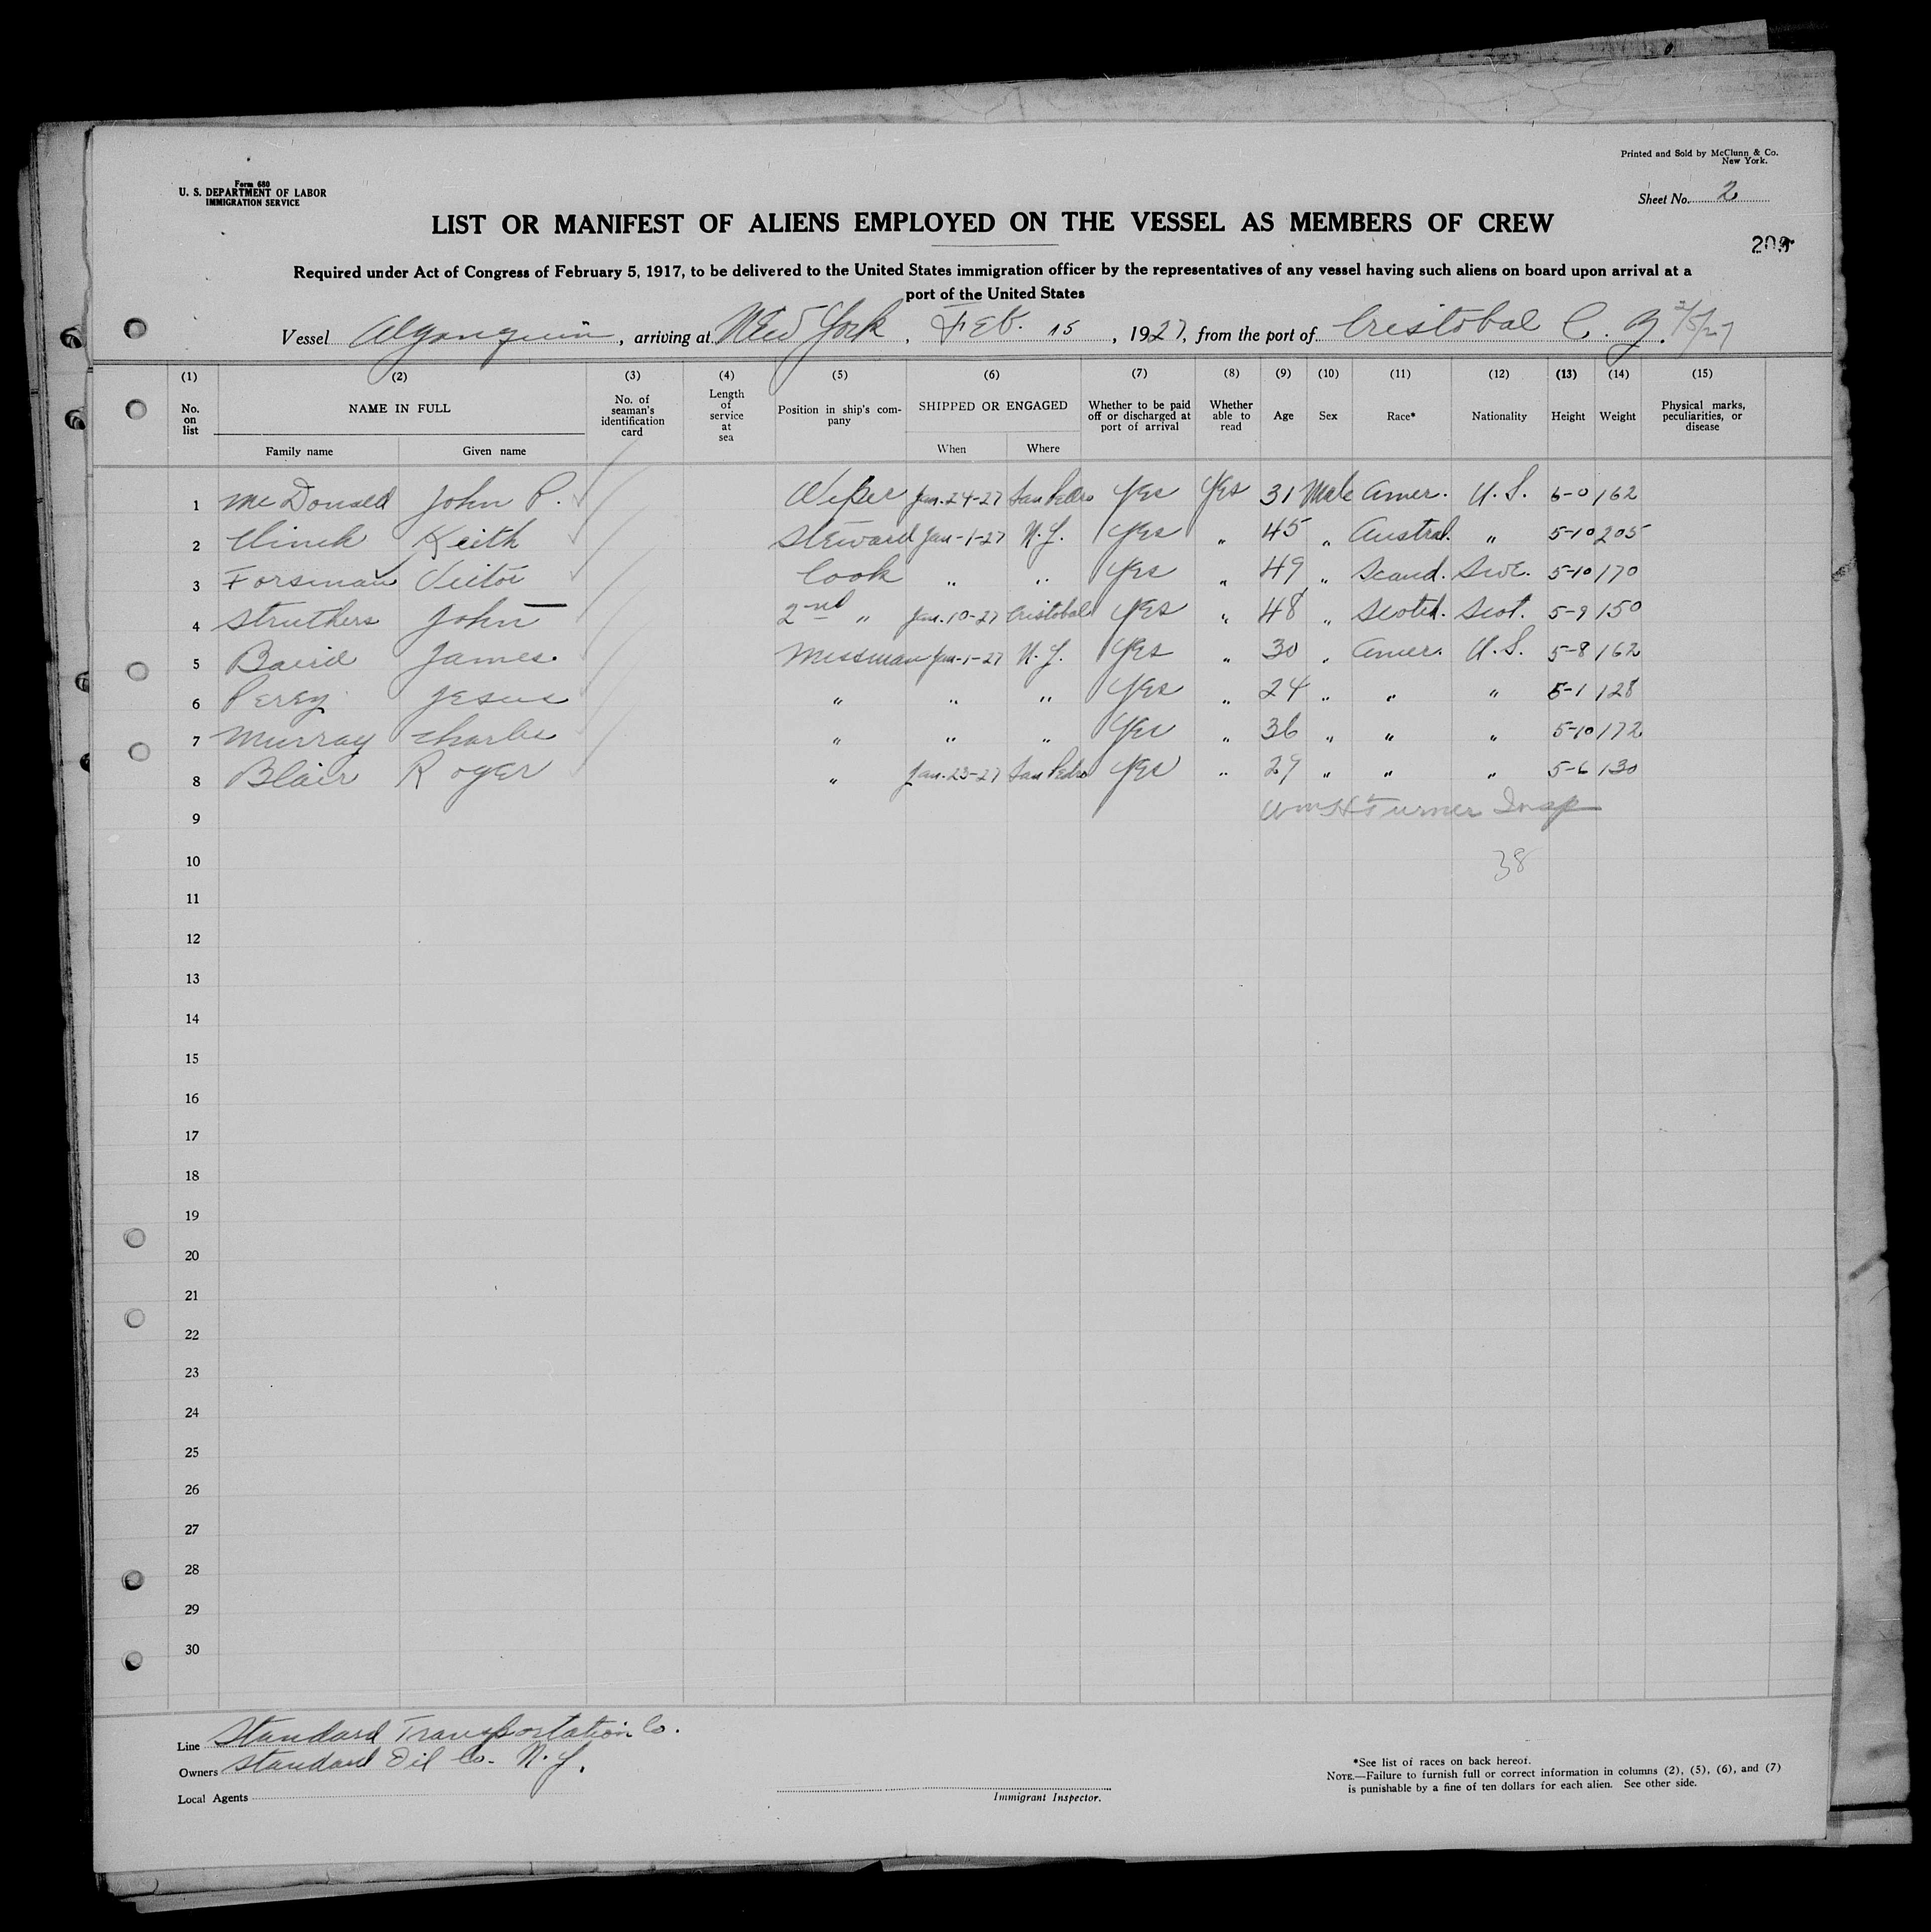 Printed and Sold by McClunn & Co.
New York.
Form 680
U. S. DEPARTMENT OF LABOR
IMMIGRATION SERVICE
Sheet No. 2
LIST OR MANIFEST OF ALIENS EMPLOYED ON THE VESSEL AS MEMBERS OF CREW
Required under Act of Congress of February 5, 1917, to be delivered to the United States immigration officer by the representatives of any vessel having such aliens on board upon arrival at a
port of the United States
Vessel Algonquin, arriving at New York, Feb. 15, 1927, from the port of Cristobal C. Z. 2/5/27
(1) (2) (3) (4) (5) (6) (7) (8) (9) (10) (11) (12) (13) (14) (15)
No. on list NAME IN FULL No. of seaman's identification card Length of service at sea Position in ship's company SHIPPED OR ENGAGED Whether to be paid off or discharged at port of arrival Whether able to read Age Sex Race* Nationality Height Weight Physical marks, peculiarities, or disease
Family name Given name When Where
1 McDonald John P. Wiper Jan. 24-27 San Pedro Yes Yes 31 Male Amer. U. S. 6-0 162
2 Keith Steward Jan-1-27 N.Y. Yes " 45 " Austral. " 5-10 205
3 Forsman Victor Cook " " Yes " 49 " Scand. Swe. 5-10 170
4 Struthers John 2nd " Jan. 10-27 Cristobal Yes " 48 " Scotch. Scot. 5-9 150
5 Baird James. Messman Jan-1-27 N.Y. Yes " 30 " Amer. U.S. 5-8 162
6 Perez Jesus " " " Yes " 24 " " " 5-1 128
7 Murray Charles " " " Yes " 36 " " " 5-10 172
8 Blair Roger " Jan. 23-27 San Pedro Yes " 29 " " " 5-6 130
9 Wm H Turner Insp
10 38
11
12
13
14
15
16
17
18
19
20
21
22
23
24
25
26
27
28
29
30
Line Standard Transportation Co.
Owners Standard Oil Co. N.Y.
Local Agents
Immigrant Inspector.
*See list of races on back hereof.
NOTE.—Failure to furnish full or correct information in columns (2), (5), (6), and (7)
is punishable by a fine of ten dollars for each alien. See other side.